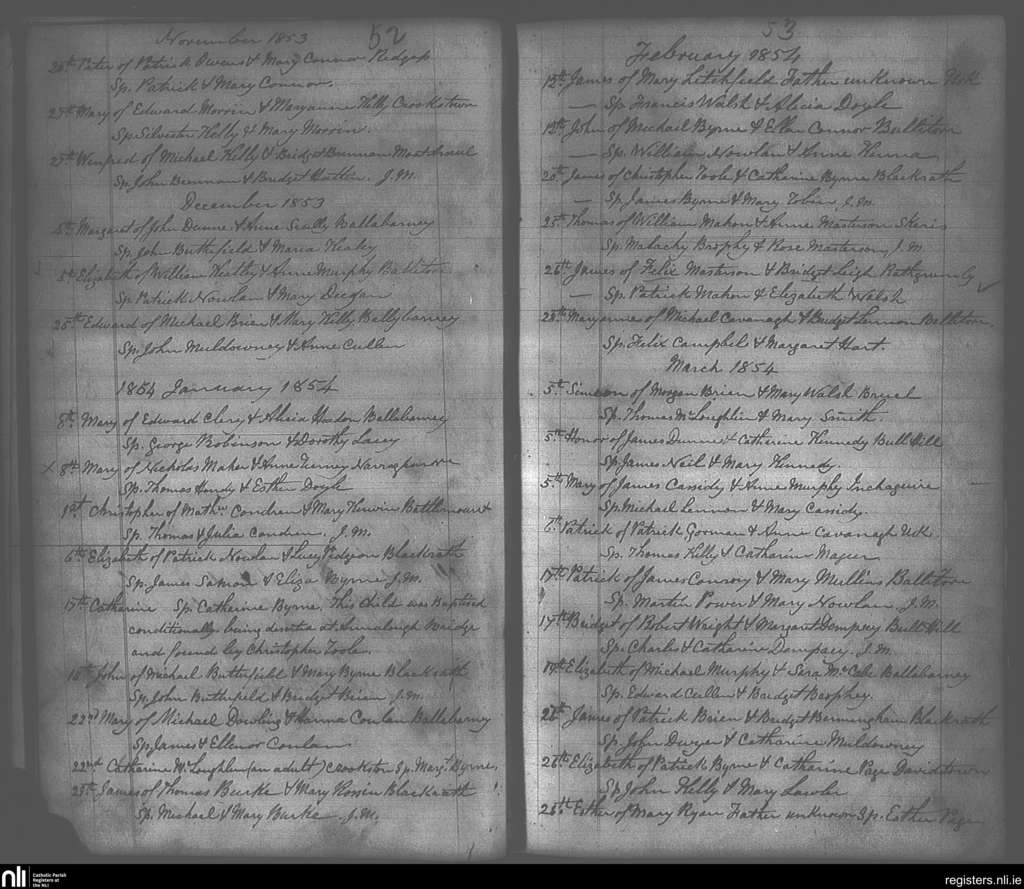 November 1853 52
20th Peter of Patrick Owens & Mary Connor Redgap
Sp. Patrick & Mary Connor.
27th Mary of Edward Morrin & Maryanne Kelly Crookstown
Sp. Silvester Kelly & Mary Morrin.
27th Winfred of Michael Kelly & Bridget Brennan
Sp. John Brennan & Bridget J.M.
December 1853
Margaret of John Dunne & Anne Scully Ballabarney
Sp. John Butterfield & Maria
Elizabeth of William & Anne Murphy Ballitore
Sp. Patrick Nowlan & Mary Deegan
25th Edward of Michael Brien & Mary Kelly Ballybarney
Sp. John Muldowney & Anne Cullen
1854 January 1854
8th Mary of Edward Clery & Alicia Ballebarney
Sp. George Robinson & Dorothy Lacey
x 8th Mary of Nicholas Maher & Anne Tierney Narraghmore
Sp. Thomas Hendy & Esther Doyle
1st Christopher of Mathw Condren & Mary Kerwin Battlemount
Sp. Thomas & Julia Condren. J.M.
6th Elizabeth of Patrick Nowlan & Lucy Pidgeon Blackrath
Sp. James Salmon & Eliza Byrne J.M.
17th Catharine Sp. Catharine Byrne. This Child was Baptised
conditionally being deserted at Bridge
and found by Christopher Toole.
John of Michael Butterfield & Mary Byrne Blackrath
Sp. John Butterfield & Bridget Brien J.M.
22nd Mary of Michael Dowling & Hanna Conlan Ballebarney
Sp. James & Ellenor Conlan
22nd Catharine McLoughlin (an adult) Crookston Sp. Margt. Byrne.
25th James of Thomas Burke & Mary Rossin Blackrath
Sp. Michael & Mary Burke J.M.
53
February 1854
12th James of Mary Litchfield Father unknown
— Sp. Francis Walsh & Alicia Doyle
12th John of Michael Byrne & Ellen Connor Ballitore
— Sp. William Nowlan & Anne Kenna
20th James of Christopher Toole & Catharine Byrne Blackrath
— Sp. James Byrne & Mary Tobin J.M.
25th Thomas of William Mahon & Anne Masterson Skeris
Sp. Malachy Brophy & Rose Masterson J.M
26th James of Felix Masterson & Bridget Leigh Rathgrumly
— Sp. Patrick Mahon & Elizabeth Walsh
28th Maryanne of Michael Cavanagh & Bridget Lennon Ballitore.
Sp. Felix Campbel & Margaret Hart.
March 1854
5th Simeon of Morgan Brien & Mary Walsh
Sp. Thomas McLoughlin & Mary Smith
5th Honor of James Dunne & Catharine Kennedy Bull Hill
Sp. James Neil & Mary Kennedy.
5th Mary of James Cassidy & Anne Murphy Inchaquire
Sp. Michael Lennon & Mary Cassidy.
6th Patrick of Patrick Gorman & Anne Cavanagh
Sp. Thomas Kelly & Catharin
17th Patrick of James Conroy & Mary Mullins Ballitore
Sp. Martin Power & Mary Nowlan J.M.
17th Bridget of Robert Wright & Margaret Dempsey Bull Hill
Sp. Charles & Catharine Dempsey. J.M.
19th Elizabeth of Michael Murphy & Sara McCabe Ballebarney
Sp. Edward Cullen & Bridget Brophy.
26th James of Patrick Brien & Bridget Bermingham Blackrath
Sp. John Dwyer & Catharine Muldowney
26th Elizabeth of Patrick Byrne & Catharine Page Davidstown
Sp. John Kelly & Mary Lawler
25th Esther of Mary Ryan Father unknown Sp. Esther Page
nli Catholic Parish
Registers at
the NLI
registers.nli.ie